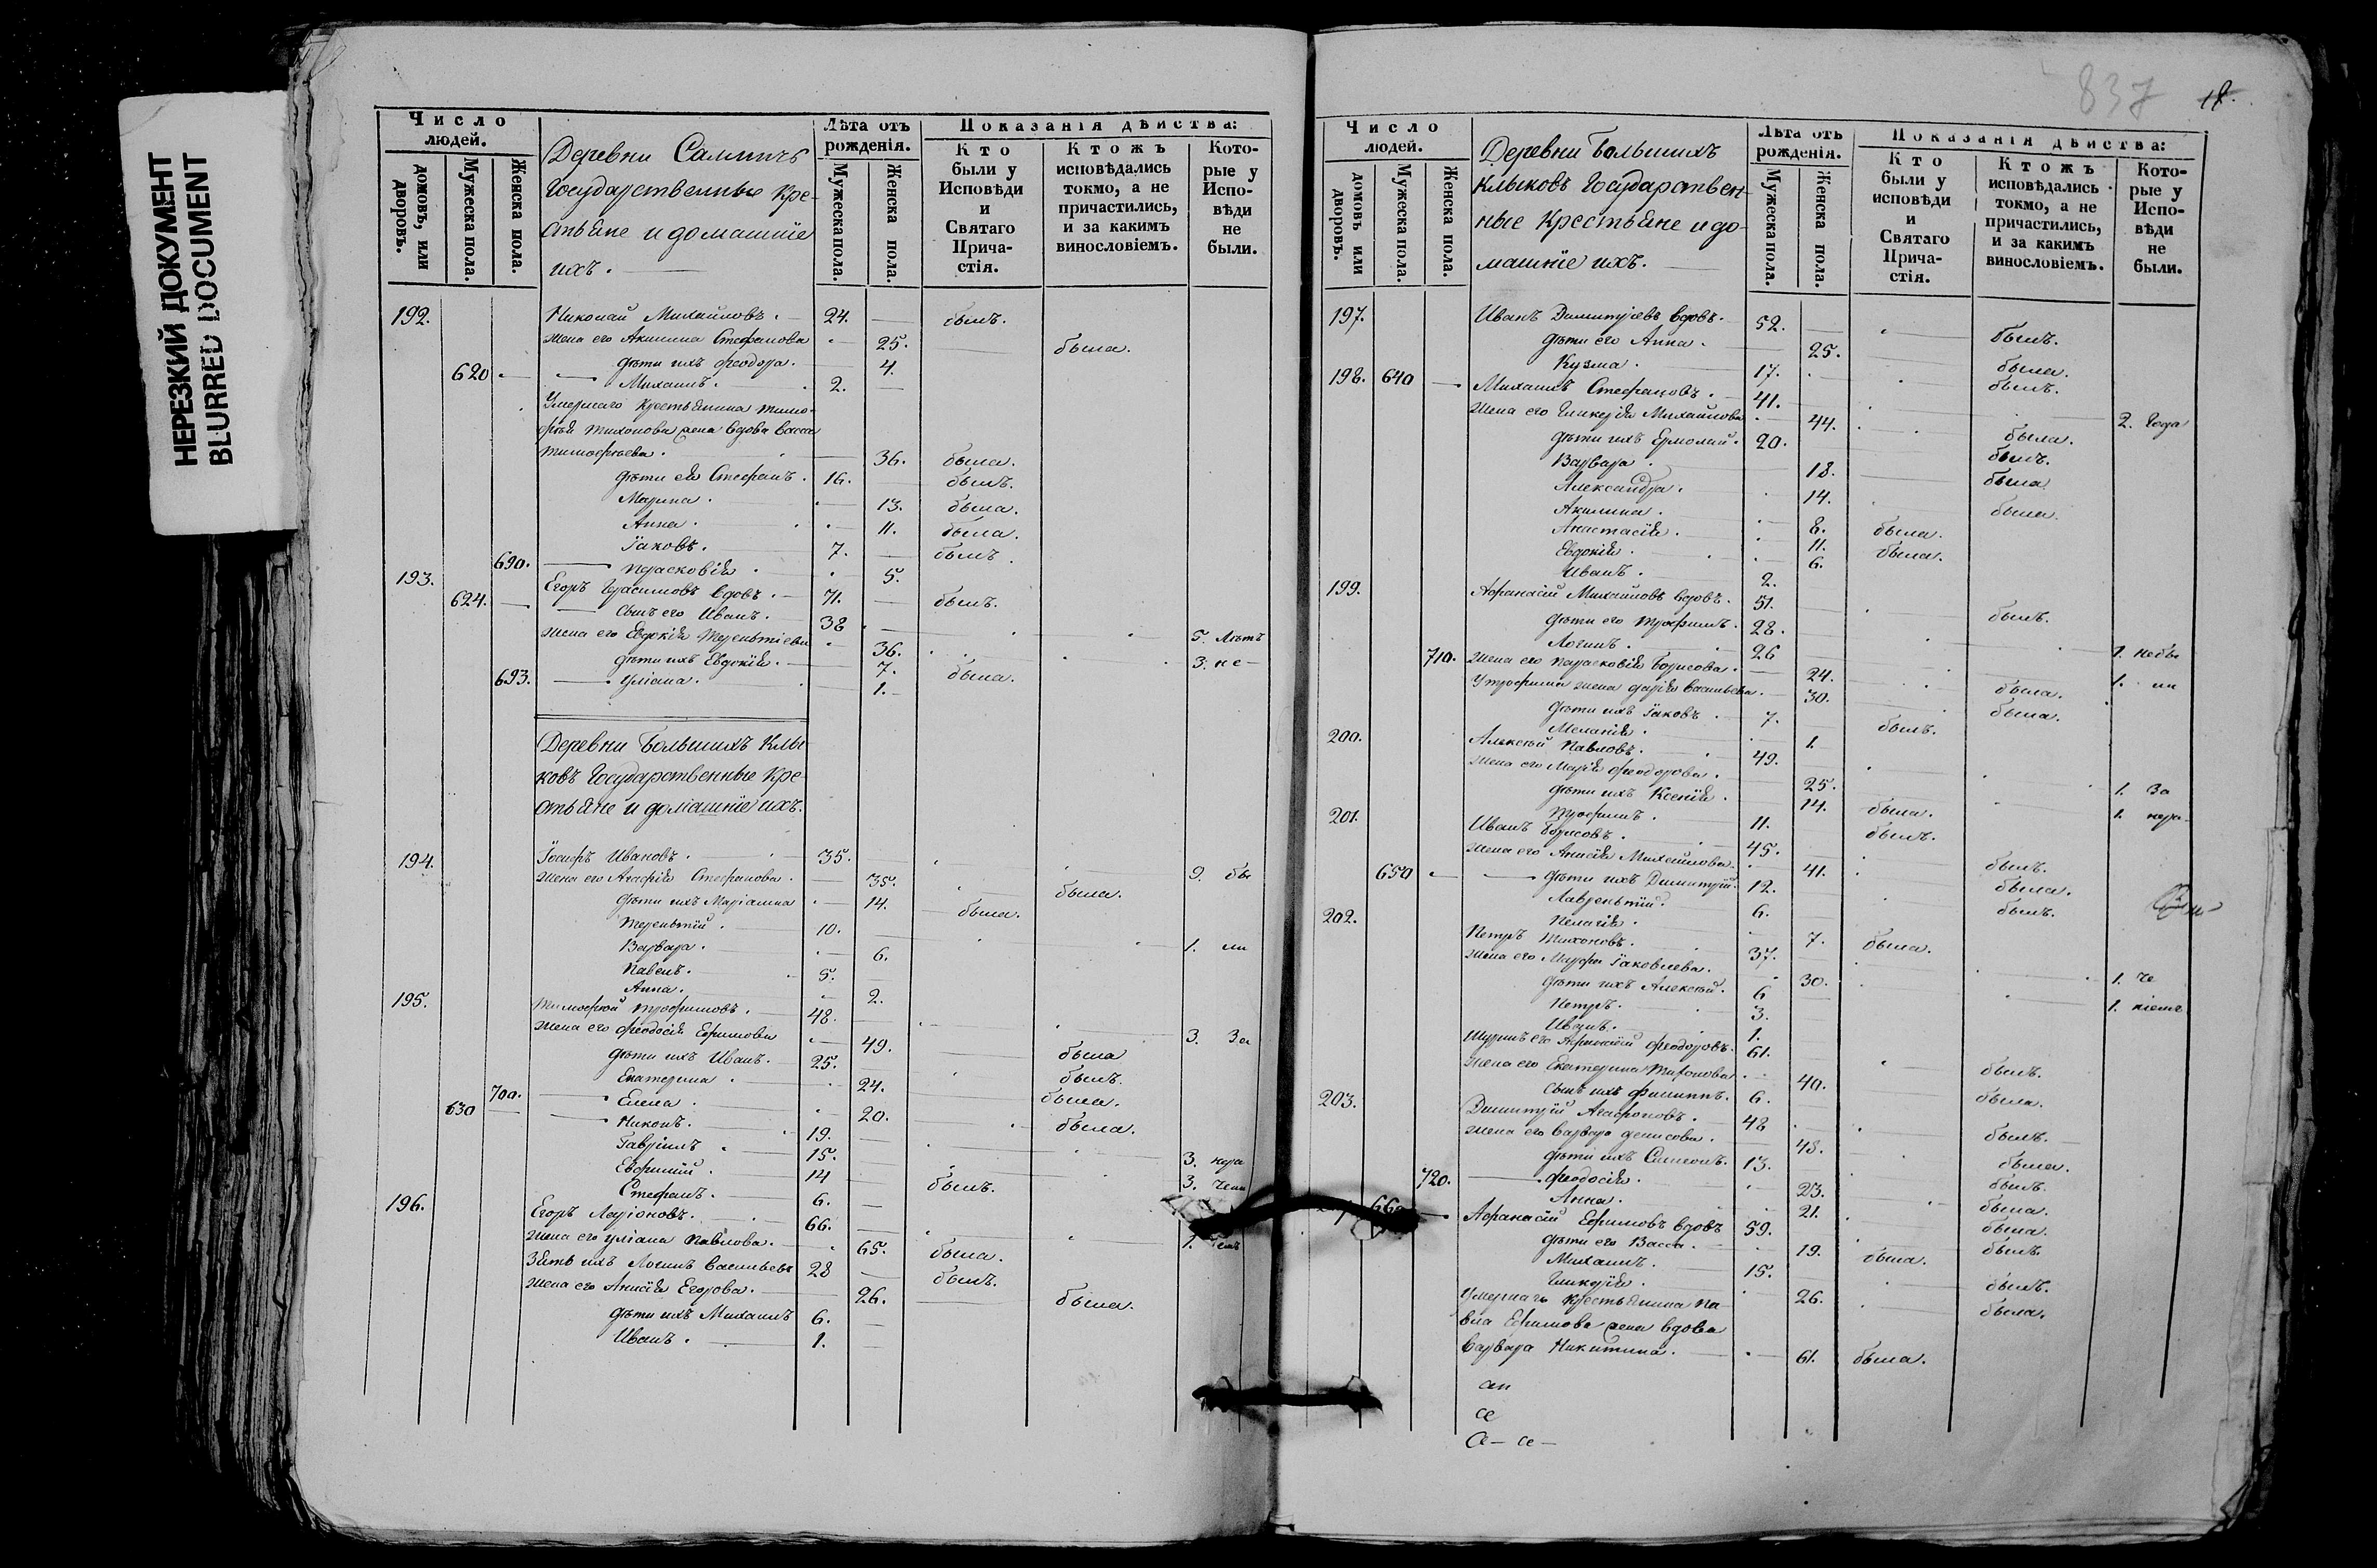 НЕРЕЗКИЙ ДОКУМЕНТ
BLURRED DOCUMENT
Число людей.
домовъ, или дворовъ.
Мужеска пола.
Женска пола.
Деревни
Государственные Кре-
стьяне и домашніе
ихъ.
Лѣта отъ рожденія.
Мужеска пола.
Женска пола.
Показанія дѣйства:
Кто были у Исповѣди и Святаго Прича-стія.
Ктожъ исповѣдались токмо, а не причастились, и за какимъ винословіемъ.
Кото-рые у Испо-вѣди не были.
192. Николай Михайловъ. 24. былъ.
Жена его Акилина Стефанова 25. была.
дѣти ихъ Феодора. 4.
620 Михаилъ. 2.
Умершаго Крестьянина Тимо-
фея Тихонова жена вдова Васса
Тимофеева. 36. была.
дѣти ея Стефанъ. 16. былъ.
Марина. 13. была.
Анна. 11. была.
Іаковъ. 7. былъ.
690. Парасковія. 5.
193. Егоръ Герасимовъ вдовъ. 71. былъ.
624. Сынъ его Иванъ. 38
Жена его Евдокія Терентіева 36. 5. Лѣтъ
дѣти ихъ Евдокія. 7. была. 3. не-
693. Уліана. 1.
Деревни Большихъ Клы-
ковъ Государственные Кре-
стьяне и домашніе ихъ.
194. Іосифъ Ивановъ. 35.
Жена его Агафія Стефанова. 35. была. 9. бы
дѣти ихъ Маріамна 14. была.
Терентій. 10.
Варвара. 6. 1. ли
Павелъ. 5.
Анна. 2.
195. Тимофей Трофимовъ. 48.
Жена его Феодосія Ефимова 49. была 3. За
дѣти ихъ Иванъ. 25. былъ.
Екатерина. 24. была.
700. Елена. 20. была.
630 Никонъ. 19.
Гавріилъ 15. 3. нера
Евфимій. 14 былъ. 3.
Стефанъ. 6.
196. Егоръ Ларіоновъ. 66.
Жена его Уліана Павлова. 65. была. 1.
Зять ихъ Логинъ Васильевъ 28 былъ.
Жена его Анисія Егорова. 26. была.
дѣти ихъ Михаилъ 6.
Иванъ. 1.
837 18.
Число людей.
домовъ или дворовъ.
Мужеска пола.
Женска пола.
Деревни Большихъ
Клыковъ Государствен-
ные Крестьяне и до-
машніе ихъ.
Лѣта отъ рожденія.
Мужеска пола.
Женска пола.
Показанія дѣйства:
Кто были у исповѣди и Святаго Прича-стія.
Ктожъ исповѣдались токмо, а не причастились, и за какимъ винословіемъ.
Кото-рые у Испо-вѣди не были.
197. Иванъ Димитріевъ вдовъ. 52. былъ.
дѣти его Анна. 25. была.
Кузма. 17. былъ.
198. 640 Михаилъ Стефановъ. 41. 2. года
Жена его Гликерія Михайлова 44. была.
дѣти ихъ Ермолай. 20. былъ.
Варвара. 18. была
Александра. 14. была.
Акилина. 8. была.
Анастасія. 11. была.
Евдокія. 6.
Иванъ. 2.
199. Афанасій Михайловъ вдовъ. 51. былъ.
дѣти его Трофимъ. 28.
Логинъ. 26 1. небы
710. Жена его Парасковія Борисова. 24. 1. ли
У Трофима жена Дарія Васильева. 30. была.
дѣти ихъ Іаковъ. 7. былъ.
Меланія. 1.
200. Алексѣй Павловъ. 49.
Жена его Марія Феодорова. 25. 1. За
дѣти ихъ Ксенія. 14. была. 1. нера-
Трофимъ. 11. былъ.
201. Иванъ Борисовъ. 45. былъ.
Жена его Анисія Михайлова. 41. была.
650 дѣти ихъ Димитрій. 12. былъ.
Лаврентій. 6.
Пелагія. 7. была.
202. Петръ Тихоновъ. 37.
Жена его Марфа Іаковлева. 30. 1. че
дѣти ихъ Алексѣй. 6 1. ніемъ
Петръ. 3.
Иванъ. 1.
Шуринъ его Афанасій Феодоровъ. 61. былъ.
Жена его Екатерина Тихонова. 40. была.
Сынъ ихъ Филиппъ. 6.
203. Димитрій Агафоновъ. 48 былъ.
Жена его Варвара Денисова. 48. была.
дѣти ихъ Симеонъ. 13. былъ.
720. Феодосія. 23. была.
Анна. 21. была.
Афанасій Ефимовъ вдовъ 59. былъ
дѣти его Васса. 19. была.
Михаилъ. 15. былъ.
Гликерія. 26. была.
Умершаго Крестьянина Па-
вла Ефимова жена вдова
Варвара Никитина. 61. была.